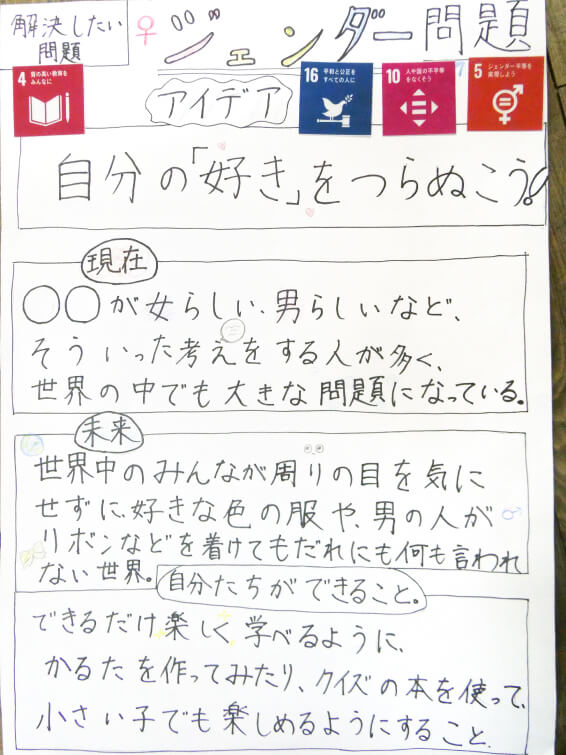 解決したい
問題
ジェンダー問題
4 質の高い教育を
みんなに
アイデア
16 平和と公正を
すべての人に
10 人や国の不平等
をなくそう
5 ジェンダー平等を
実現しよう
自分の「好き」をつらぬこう。
現在
○○が女らしい、男らしいなど、
そういった考えをする人が多く、
世界の中でも大きな問題になっている。
未来
世界中のみんなが周りの目を気に
せずに、好きな色の服や、男の人が
リボンなどを着けてもだれにも何も言われ
ない世界。
自分たちができること。
できるだけ楽しく学べるように、
かるたを作ってみたり、クイズの本を使って、
小さい子でも楽しめるようにすること